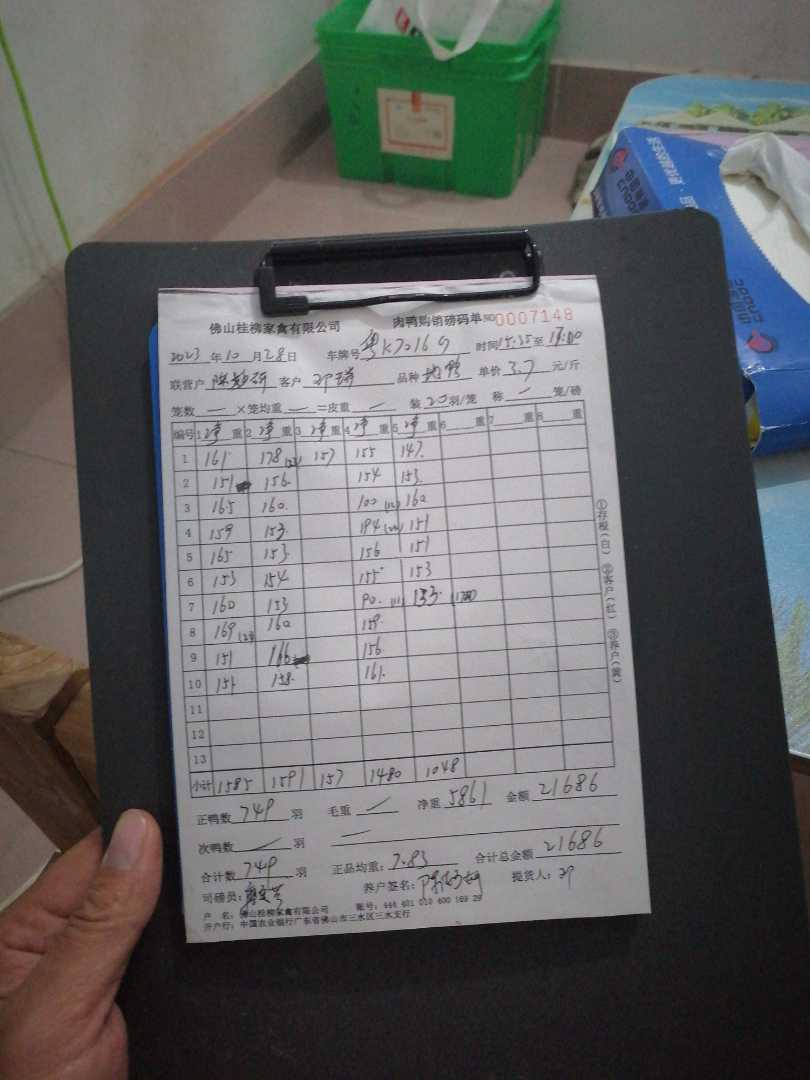 佛山桂柳家禽有限公司 肉鸭购销磅码单 NO 0007148
2023 年 10 月 28 日 车牌号 粤K70169 时间 15:35 至 17:00
联营户 客户 邓瑞 品种 单价 3.7 元/斤
笼数 — ×笼均重 — =皮重 — 装 20 羽/笼 称 — 笼/磅
编号 1 净 重 2 净 重 3 净 重 4 净 重 5 净 重 6 重 7 重 8 重
1 161 178 (23) 157 155 147
2 151 156 154 153
3 165 160 100 (12) 160
4 159 153 194 151
5 165 153 156 151
6 153 154 155 153
7 160 153 90 (11) 153
8 169 160 159
9 151 166 156
10 151 158 161
11
12
13
小计 1585 1591 157 1480 1048
正鸭数 749 羽 毛重 — 净重 5861 金额 21686
次鸭数 — 羽 —
合计数 749 羽 正品均重: 7.83 合计总金额 21686
司磅员: 养户签名: 提货人: 邓
户 名: 佛山桂柳家禽有限公司 账号: 444 601 010 400 169 29
开户行: 中国农业银行广东省佛山市三水区三水支行
①存根(白) ②客户(红) ③养户(黄)